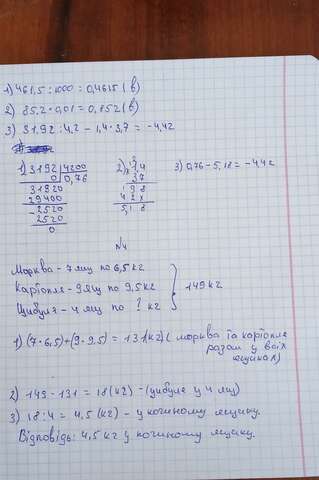 1) 461,5 : 1000 = 0,4615 (в)
2) 85,2 · 0,01 = 0,852 (в)
3) 3192 : 4,2 - 1,4 · 3,7 = -4,42
1) 3192 | 4200 2) 1,4 3) 0,76 - 5,18 = -4,42
0 | 0,76 3,7
31920 98
29400 42
2520 5,18
2520
0
N4
Морква - 7 ящ по 6,5 кг
Картопля - 9 ящ по 9,5 кг } 149 кг
Цибуля - 4 ящ по ? кг
1) (7·6,5)+(9·9,5) = 131(кг) ( морква та картопля
разом у всіх
ящиках)
2) 149 - 131 = 18 (кг) - (цибуле у 4 ящ)
3) 18 : 4 = 4,5 (кг) - у кожному ящику.
Відповідь: 4,5 кг у кожному ящику.